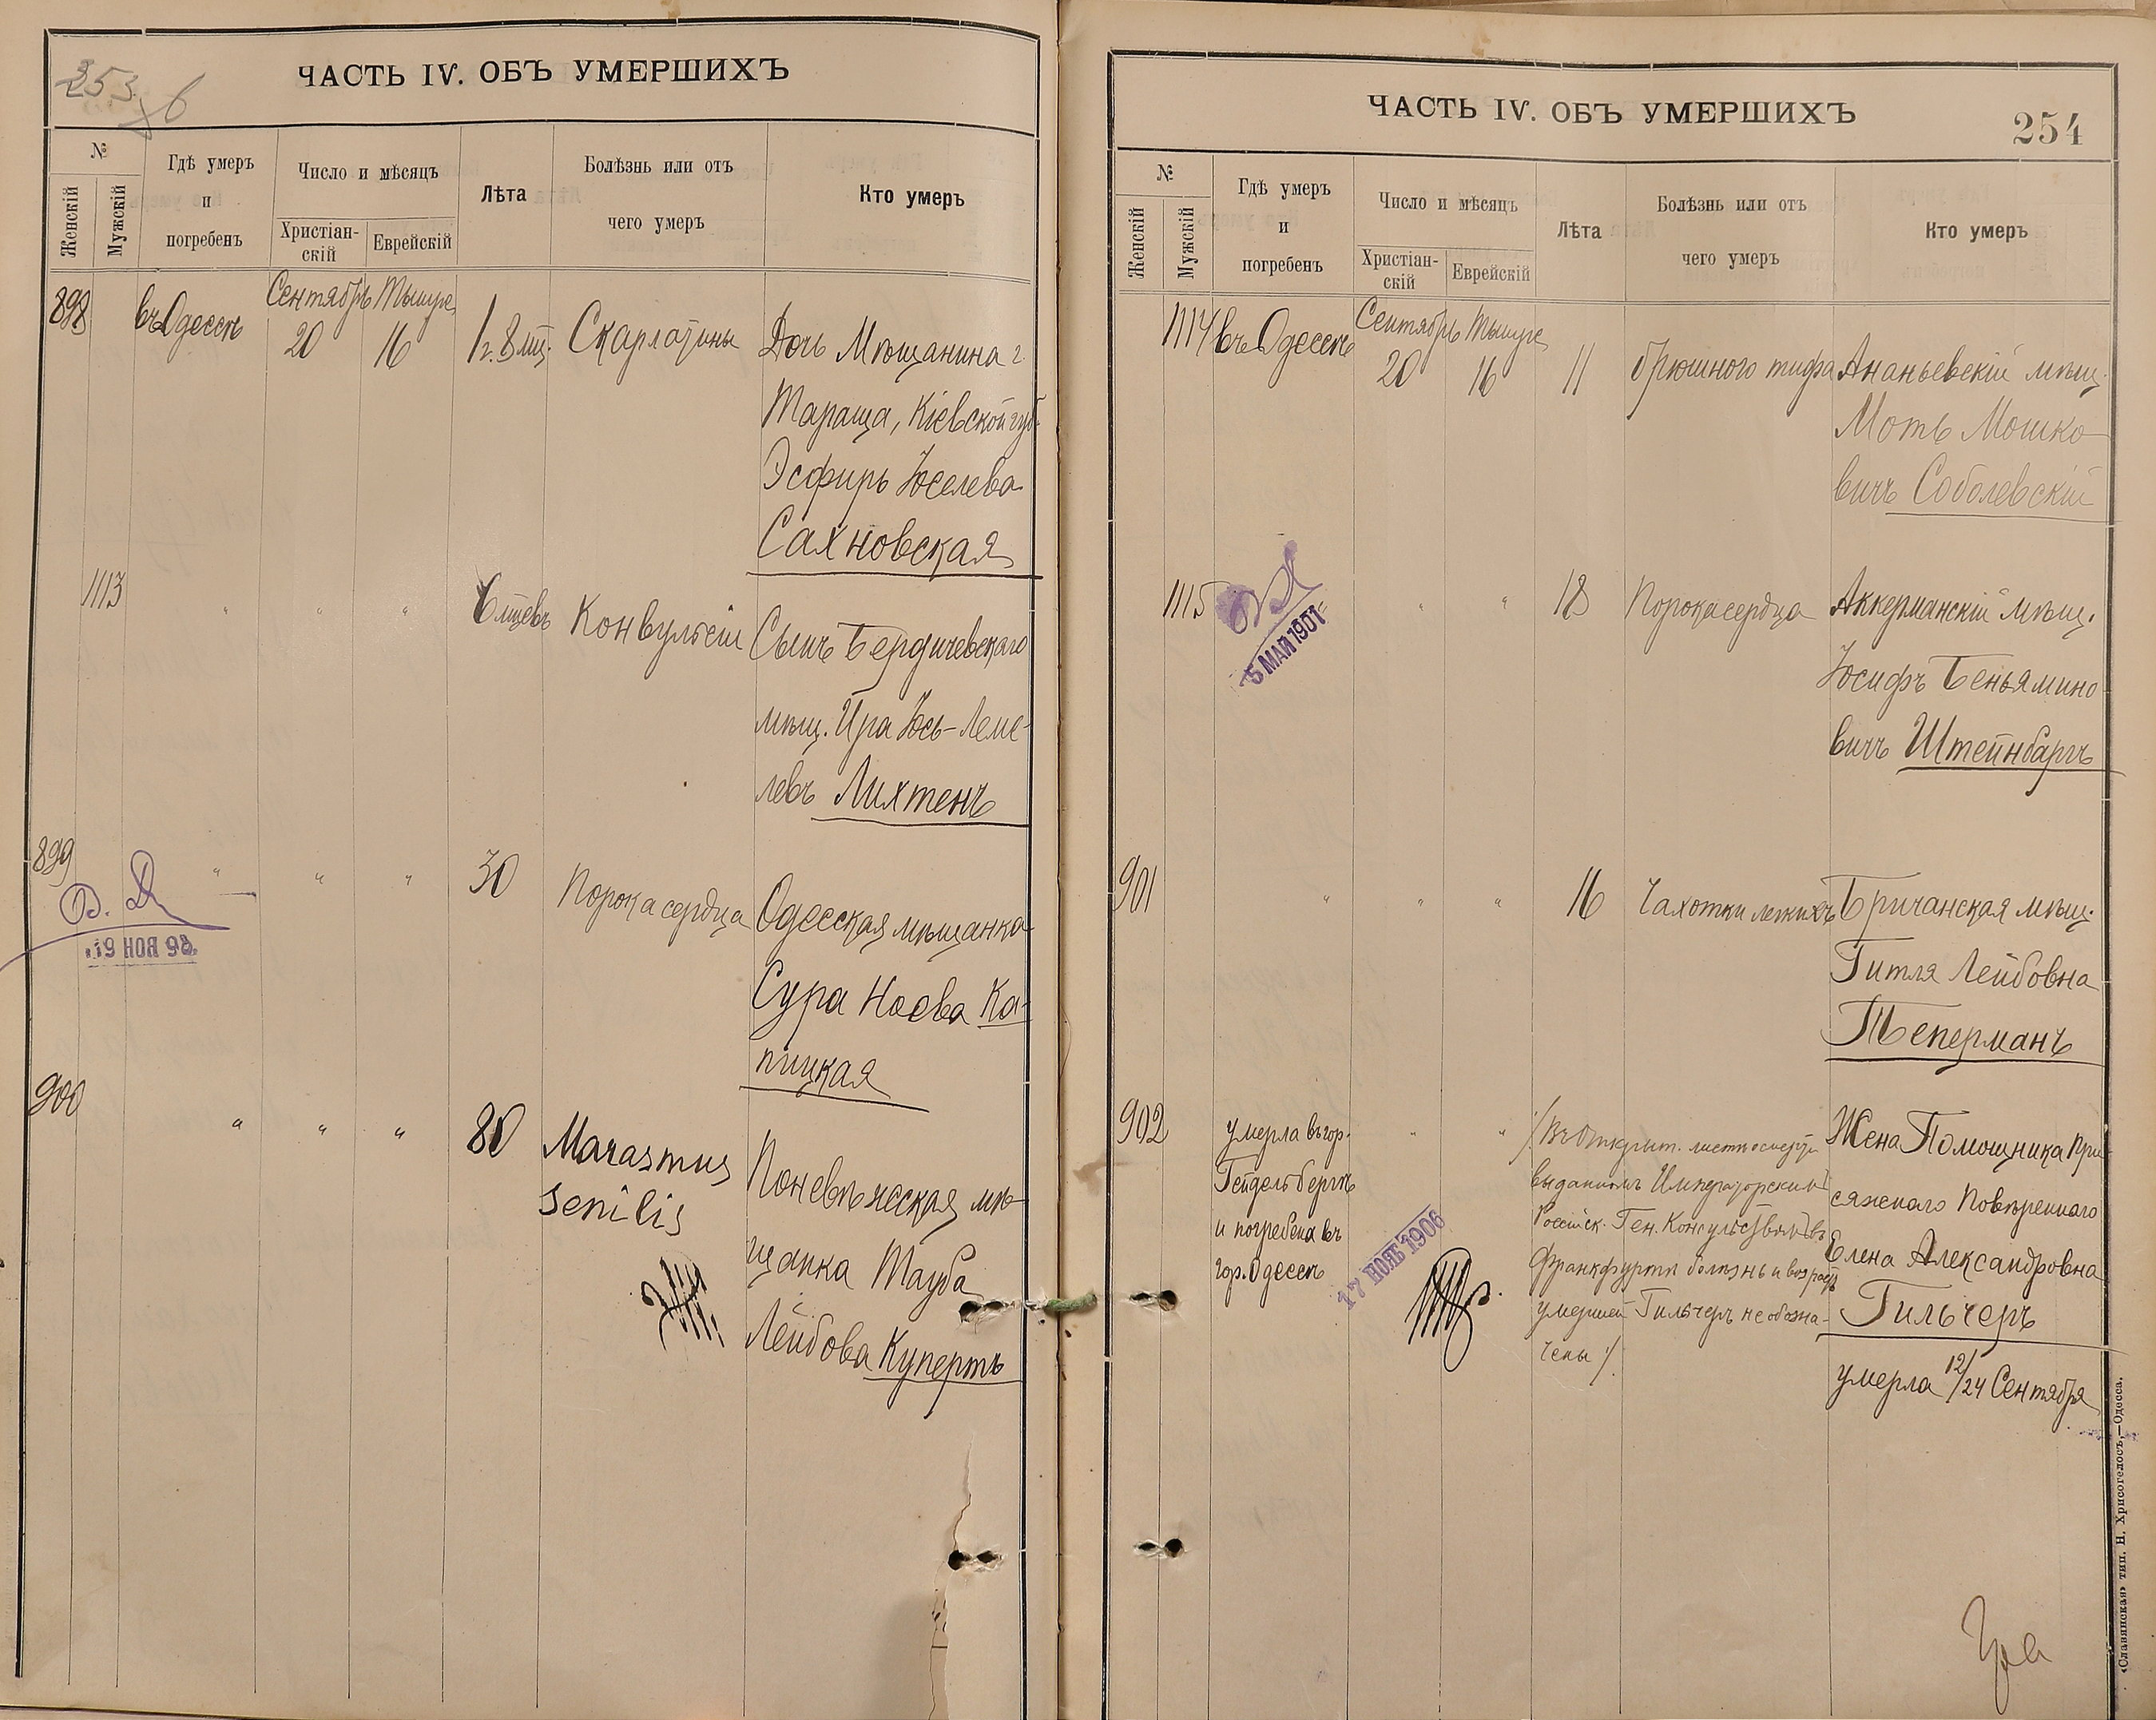 353
ЧАСТЬ IV. ОБЪ УМЕРШИХЪ
№
Женскій
Мужскій
Гдѣ умеръ
и
погребенъ
Число и мѣсяцъ
Христіан-
скій
Еврейскій
Лѣта
Болѣзнь или отъ
чего умеръ
Кто умеръ
898
въ Одессѣ
Сентябрь
20
Тышре
16
1 г. 8 мц.
Скарлатины
Дочь Мѣщанина г.
Тараща, Кіевской губ.
Эсфирь Іоселева
Сахновская
1113
" " "
6 мцевъ
Конвульсіи
Сынъ Бердичевскаго
мѣщ. Ира Іось-Леме-
левъ Лихтенъ
899
" " "
30
Порока сердца
Одесская мѣщанка
Сура Ноева Ка-
пицкая
19 НОЯ 98
900
" " "
80
Marasmus
senilis
Поневѣжеская мѣ-
щанка Тауба
Лейбова Купертъ
ЧАСТЬ IV. ОБЪ УМЕРШИХЪ
254
№
Женскій
Мужскій
Гдѣ умеръ
и
погребенъ
Число и мѣсяцъ
Христіан-
скій
Еврейскій
Лѣта
Болѣзнь или отъ
чего умеръ
Кто умеръ
1114
въ Одессѣ
Сентябрь
20
Тышре
16
11
брюшного тифа
Ананьевскій мѣщ.
Моть Мошко-
вичъ Соболевскій
1115
5 МАЙ 1907
" "
18
Порока сердца
Аккерманскій мѣщ.
Іосифъ Беньямино-
вичъ Штейнбаргъ
901
" " "
16
Чахотки легкихъ
Бричанская мѣщ.
Гитля Лейбовна
Теперманъ
902
умерла въ гор.
Гейдельбергѣ
и погребена въ
гор. Одессѣ
" "
17 НОЯБ 1906
/Въ Открыт. листѣ
выданномъ Императорскимъ
Россійск. Ген. Консульствомъ въ
Франкфуртѣ болѣзнь и возрастъ
умершей Гильчеръ не обозна-
чены/.
Жена Помощника При-
сяжнаго Повѣреннаго
Елена Александровна
Гильчеръ
умерла 12/24 Сентября
«Славянская» тип. Н. Хрисогелосъ,—Одесса.